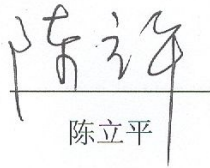 陈立平
陈立平